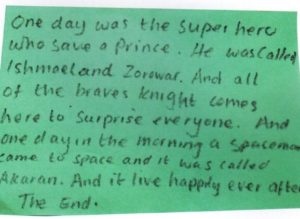 One day was the super hero
who save a Prince. He was called
Ishmael and Zorawar. And all
of the braves knight comes
here to surprise everyone. And
one day in the morning a spaceman
came to space and it was called
Akaran. And it live happly ever after
The End.